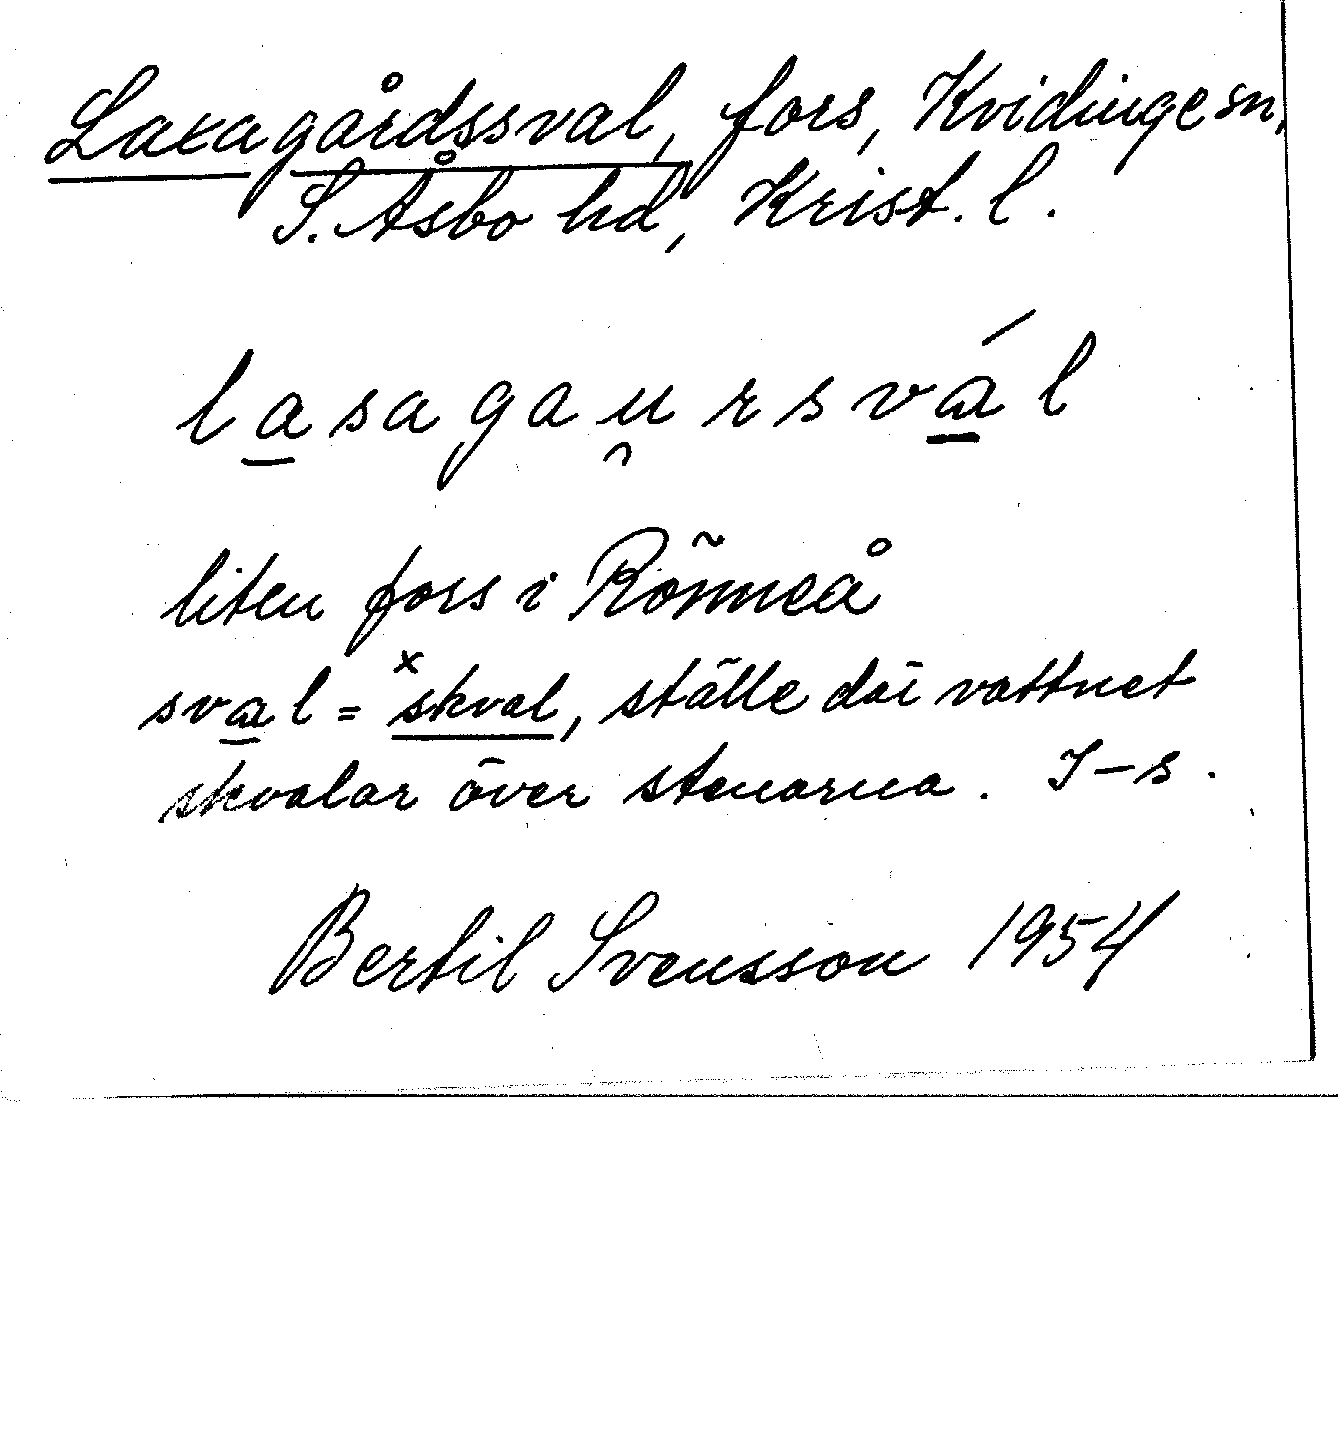 Laxagårdssval, fors, Kvidinge sn,
S. Åsbo hd, Krist. l.
lasagau̯rsvál
liten fors i Rönneå
sval = ˣskval, ställe där vattnet
skvalar över stenarna. I-s.
Bertil Svensson 1954